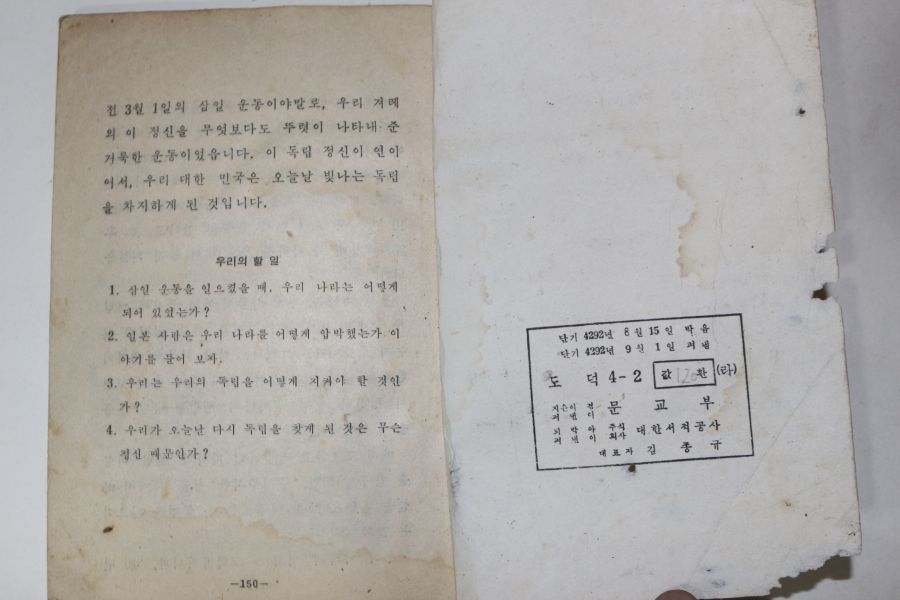 전 3월 1일의 삼일 운동이야말로, 우리 겨레
의 이 정신을 무엇보다도 뚜렷이 나타내 준
거룩한 운동이었읍니다. 이 독립 정신이 연이
어서, 우리 대한 민국은 오늘날 빛나는 독립
을 차지하게 된 것입니다.
우리의 할 일
1. 삼일 운동을 일으켰을 때, 우리 나라는 어떻게
되어 있었는가?
2. 일본 사람은 우리 나라를 어떻게 압박했는가 이
야기를 들어 보자.
3. 우리는 우리의 독립을 어떻게 지켜야 할 것인
가?
4. 우리가 오늘날 다시 독립을 찾게 된 것은 무슨
정신 때문인가?
—150—
단기 4292년 8월 15일 박음
단기 4292년 9월 1일 펴냄
도덕 4-2 값 120환 (라)
지은이 겸
펴낸이 문교부
되박아
펴낸이 주식
회사 대한서적공사
대표자 김종규